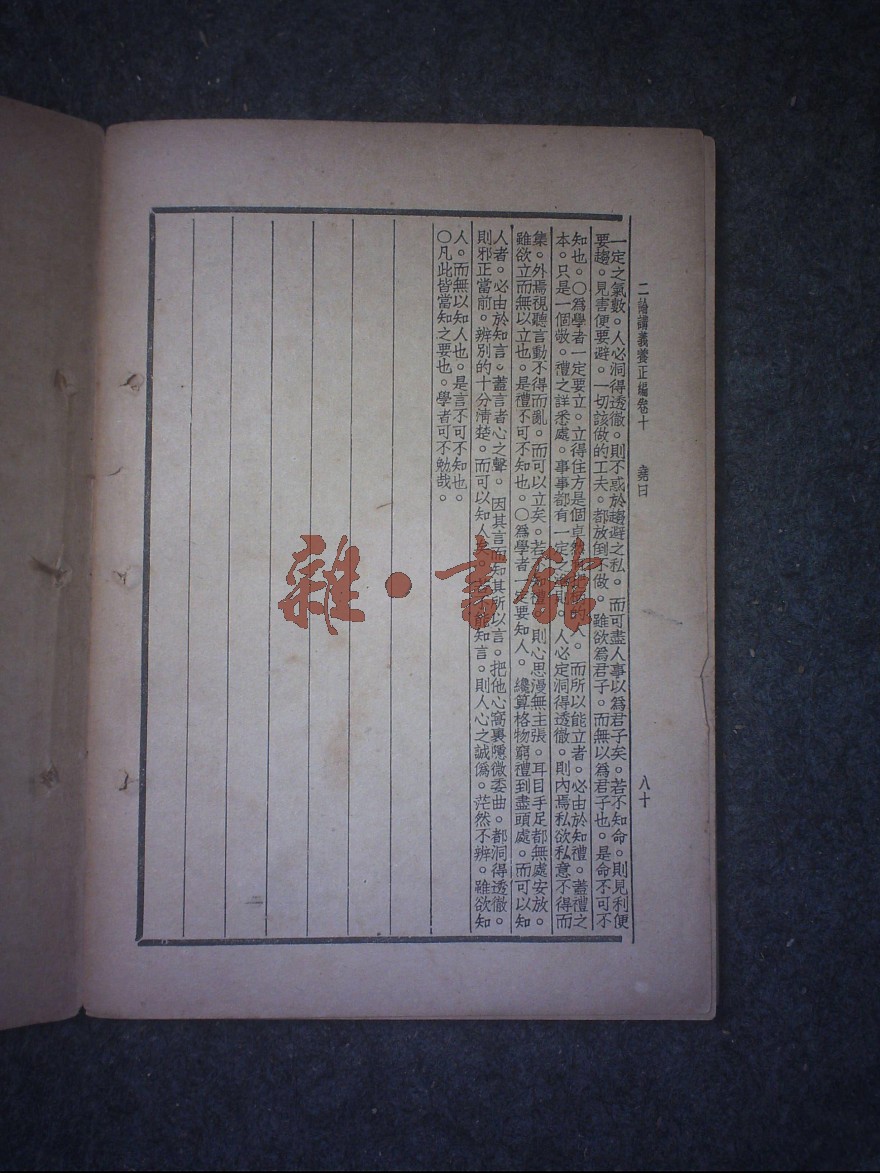 二論講義養正編卷十 堯曰 八十
一定之氣數。人必洞得透徹。則不惑於趨避之私。而可盡人事以爲君子矣。若不知命。則見利便
要趨。見害便要避。一切該做的工夫。都放倒不做。雖欲爲君子。而無以爲君子也。是命不可不
知也。〇爲學者一定要立。立得住方是個卓然人。而所以能立者。必由於知禮。蓋禮之
本。只是一個敬。禮之詳悉處。事事都有一定人必定洞得透徹。則內焉私欲私意不得而
集。外焉視聽言動不得而亂。而可以立矣。若知禮則心思漫無主張。耳目手足都無處安放。
雖欲立而無以立也。是禮不可不知也。〇爲學者一定要知人。纔算格物窮禮到盡頭處。而可以知
人者。必由於知言。蓋言者心之聲。因其言而知其所以言。把他心窩裏隱微委曲。都洞得透徹。
則邪正當前。辨別的十分清楚。而可以知人矣能知言。則人心之誠僞。茫然不辨。雖欲知
人。而無以知人也。是言不可不知也。
〇凡此皆當知之要也。學者可不勉哉。
雜·書館